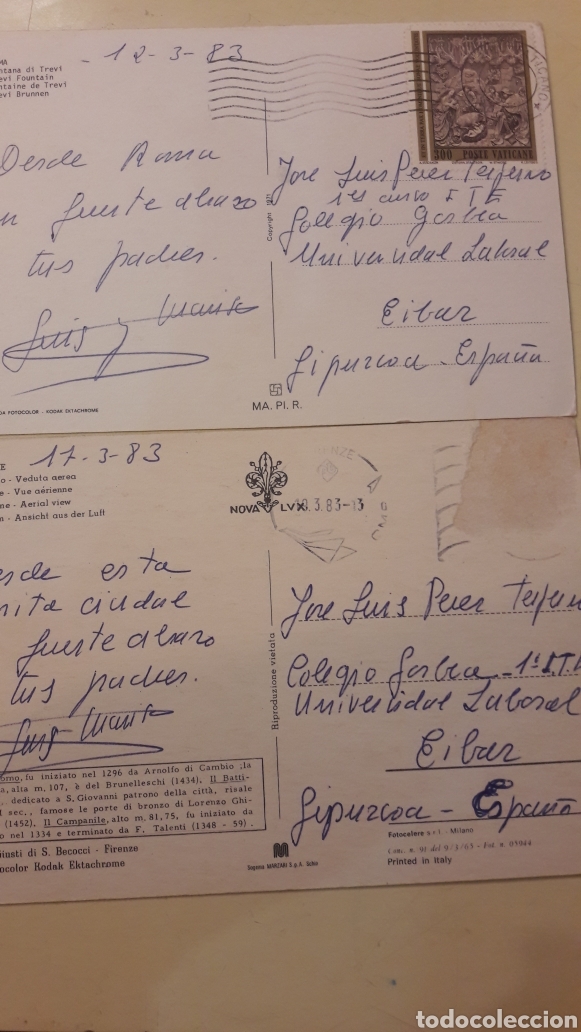 MA
ntana di Trevi
evi Fountain
ntaine de Trevi
evi Brunnen
- 12-3-83
300 POSTE VATICANE
Desde Roma
fuerte abrazo
tus padres.
Luis y
Copyright
Jose Luis Perez
1er curso I T E
Colegio Gorbea
Universidad Laboral
Eibar
Gipuzcoa - España
OA FOTOCOLOR - KODAK EKTACHROME
MA. PI. R.
17-3-83
E
o - Veduta aerea
e - Vue aérienne
ne - Aerial view
n - Ansicht aus der Luft
NOVA LVX
.3.83-13
esde esta
nita ciudad
fuerte abrazo
tus padres.
Luis
Riproduzione vietata
Jose Luis Perez
Colegio Gorbea - 1º I.T.E
Universidad Laboral
Eibar
Gipuzcoa - España
omo, fu iniziato nel 1296 da Arnolfo di Cambio ;la
a, alta m. 107, è del Brunelleschi (1434), Il Batti-
, dedicato a S. Giovanni patrono della città, risale
l sec., famose le porte di bronzo di Lorenzo Ghi-
(1452), Il Campanile, alto m. 81,75, fu iniziato da
o nel 1334 e terminato da F. Talenti (1348 - 59).
uinsti di S. Becocci - Firenze
ocolor Kodak Ektachrome
M
Sagona MANZARI S.p.A. Schio
Fotocelere s.r.l. - Milano
Conc. n. 91 del 9/3/65 - Fot. n. 03944
Printed in Italy
todocoleccion